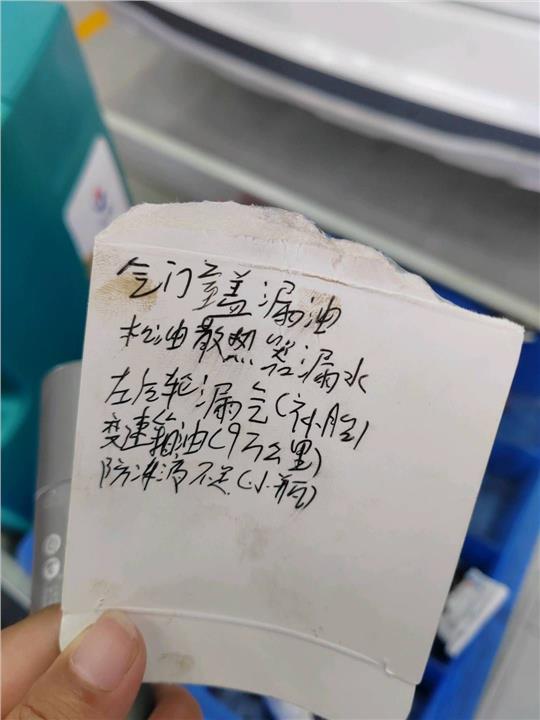 气门室盖漏油
机油散热器漏水
左后轮漏气(补胎)
变速箱油(9万公里)
防冻液不足(小瓶)